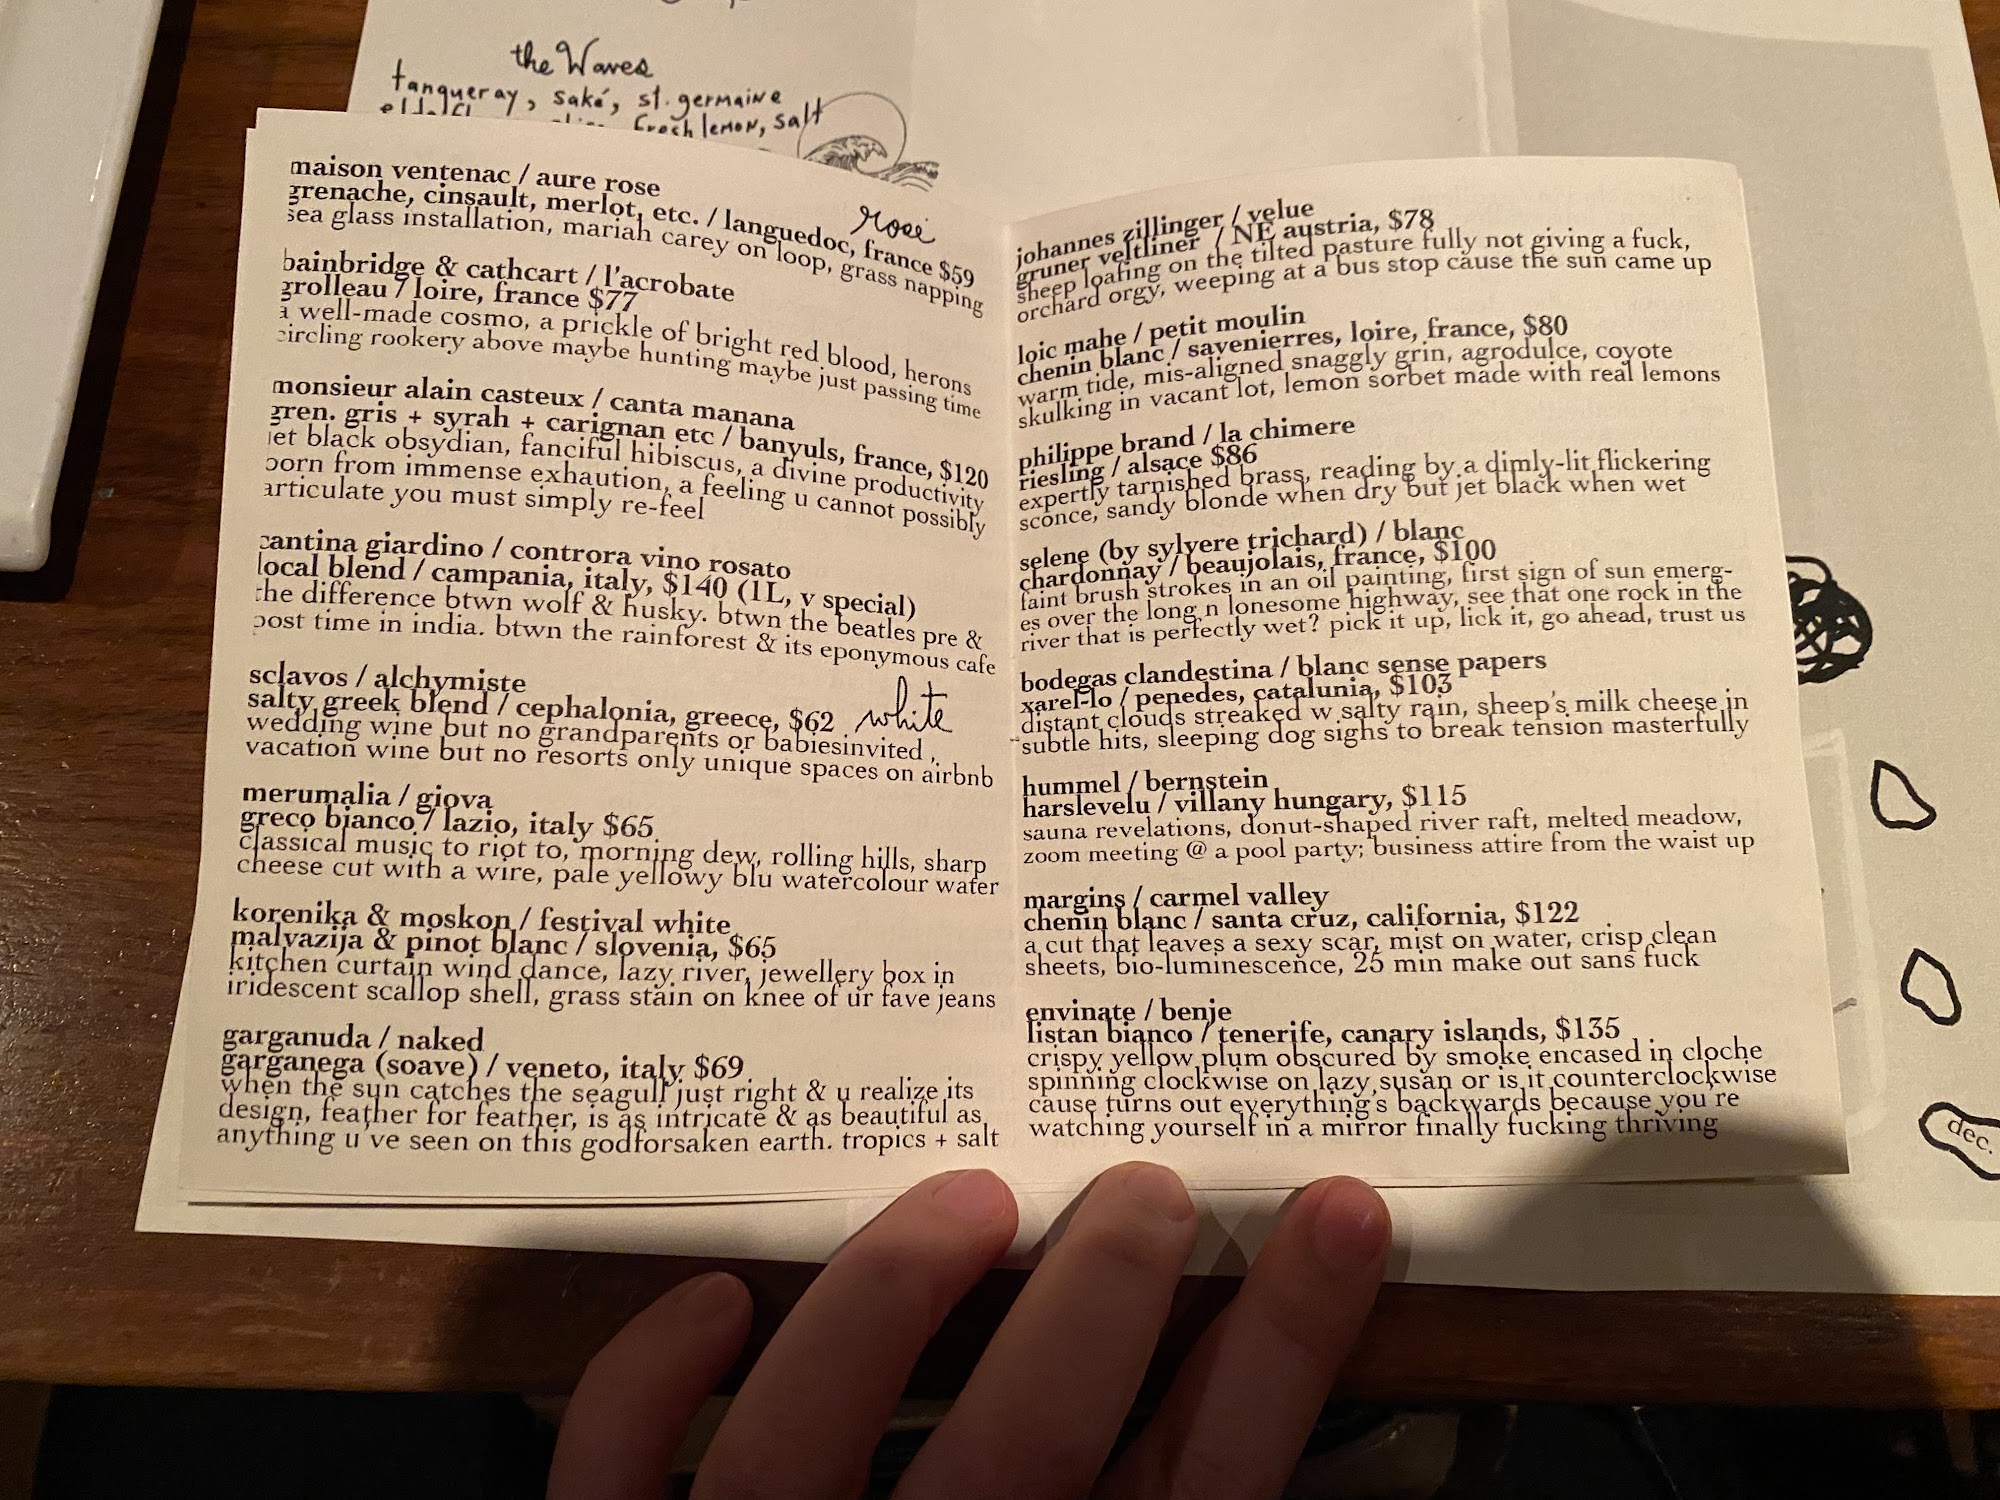 the Waves
tanqueray, saké, st. germaine
fresh lemon, salt
rosé
maison ventenac / aure rose
grenache, cinsault, merlot, etc. / languedoc, france $59
sea glass installation, mariah carey on loop, grass napping
bainbridge & cathcart / l'acrobate
grolleau / loire, france $77
a well-made cosmo, a prickle of bright red blood, herons
circling rookery above maybe hunting maybe just passing time
monsieur alain casteux / canta manana
gren. gris + syrah + carignan etc / banyuls, france, $120
jet black obsydian, fanciful hibiscus, a divine productivity
born from immense exhaution, a feeling u cannot possibly
articulate you must simply re-feel
cantina giardino / controra vino rosato
local blend / campania, italy, $140 (1L, v special)
the difference btwn wolf & husky. btwn the beatles pre &
post time in india. btwn the rainforest & its eponymous cafe
white
sclavos / alchymiste
salty greek blend / cephalonia, greece, $62
wedding wine but no grandparents or babiesinvited ,
vacation wine but no resorts only unique spaces on airbnb
merumalia / giova
greco bianco / lazio, italy $65
classical music to riot to, morning dew, rolling hills, sharp
cheese cut with a wire, pale yellowy blu watercolour water
korenika & moskon / festival white
malvazija & pinot blanc / slovenia, $65
kitchen curtain wind dance, lazy river, jewellery box in
iridescent scallop shell, grass stain on knee of ur fave jeans
garganuda / naked
garganega (soave) / veneto, italy $69
when the sun catches the seagull just right & u realize its
design, feather for feather, is as intricate & as beautiful as
anything u've seen on this godforsaken earth. tropics + salt
johannes zillinger / velue
gruner veltliner / NE austria, $78
sheep loafing on the tilted pasture fully not giving a fuck,
orchard orgy, weeping at a bus stop cause the sun came up
loic mahe / petit moulin
chenin blanc / savenierres, loire, france, $80
warm tide, mis-aligned snaggly grin, agrodulce, coyote
skulking in vacant lot, lemon sorbet made with real lemons
philippe brand / la chimere
riesling / alsace $86
expertly tarnished brass, reading by a dimly-lit flickering
sconce, sandy blonde when dry but jet black when wet
selene (by sylvere trichard) / blanc
chardonnay / beaujolais, france, $100
faint brush strokes in an oil painting, first sign of sun emerg-
es over the long n lonesome highway, see that one rock in the
river that is perfectly wet? pick it up, lick it, go ahead, trust us
bodegas clandestina / blanc sense papers
xarel-lo / penedes, catalunia, $103
distant clouds streaked w salty rain, sheep's milk cheese in
subtle hits, sleeping dog sighs to break tension masterfully
hummel / bernstein
harslevelu / villany hungary, $115
sauna revelations, donut-shaped river raft, melted meadow,
zoom meeting @ a pool party; business attire from the waist up
margins / carmel valley
chenin blanc / santa cruz, california, $122
a cut that leaves a sexy scar, mist on water, crisp clean
sheets, bio-luminescence, 25 min make out sans fuck
envinate / benje
listan bianco / tenerife, canary islands, $135
crispy yellow plum obscured by smoke encased in cloche
spinning clockwise on lazy susan or is it counterclockwise
cause turns out everything's backwards because you're
watching yourself in a mirror finally fucking thriving
dec.